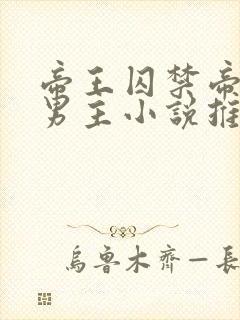 帝王囚禁帝
男主小说推
乌鲁木齐—长